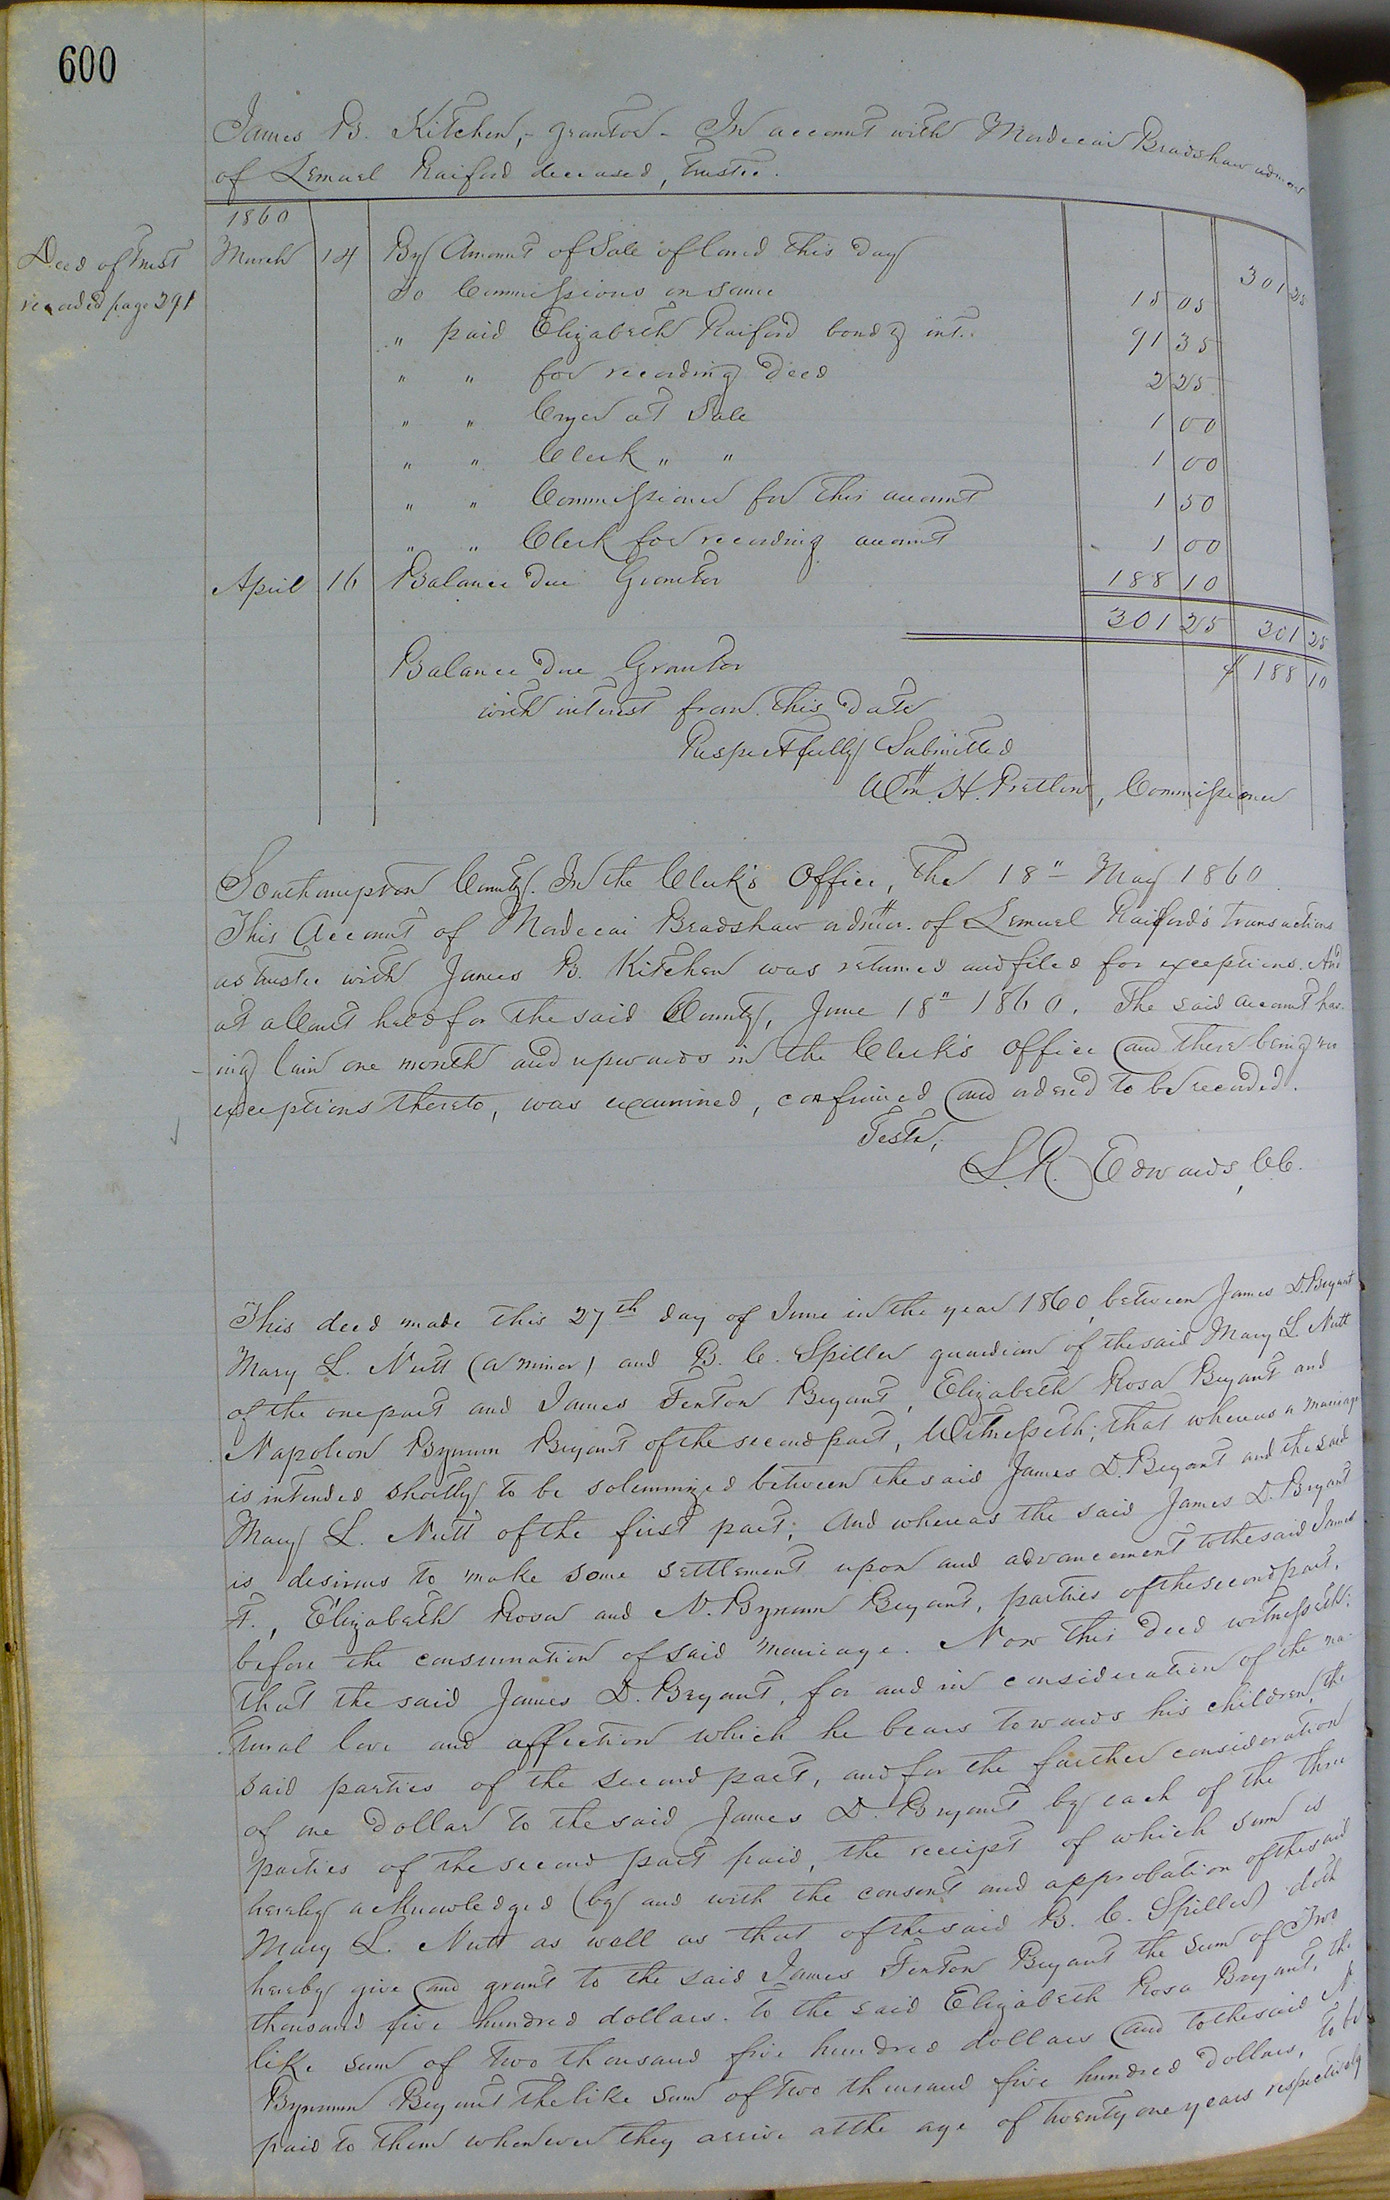 600
James B. Kitchen, - grantor - In account with Mordecai Bradshaw admor
of Lemuel Raiford deceased, trustee.
Deed of trust
recorded page 291
1860
March 14 By Amount of Sale of land this day 301 25
To Commissions on same 15 05
" paid Elizabeth Raiford bond & int.: 91 35
" " for recording Deed 2 25
" " Cryer at Sale 1 00
" " Clerk " " 1 00
" " Commissioner for this account 1 50
" " Clerk for recording account 1 00
April 16 Balance due Grantor 188 10
301 25 301 25
Balance due Grantor $ 188 10
with interest from this date
Respectfully Submitted
Wm. H. Pretlow, Commissioner
Southampton County. In the Clerk's Office, the 18" May 1860.
This Account of Mordecai Bradshaw admor. of Lemuel Raiford's transactions
as trustee with James B. Kitchen was returned and filed for exceptions. And
at a Court held for the said County, June 18" 1860. The said account hav-
ing lain one month and upwards in the Clerk's office and there being no
exceptions thereto, was examined, confirmed and ordered to be recorded.
Teste,
L. R. Edwards, CC.
This deed made this 27th day of June in the year 1860, between James D. Bryant
Mary L. Nutt (a minor) and B. C. Spiller guardian of the said Mary L. Nutt
of the one part and James Fenton Bryant, Elizabeth Rosa Bryant and
Napoleon Bynum Bryant of the second part, Witnesseth; that whereas a marriage
is intended shortly to be solemnized between the said James D. Bryant and the said
Mary L. Nutt of the first part; And whereas the said James D. Bryant
is desirous to make some settlement upon and advancement to the said James
F., Elizabeth Rosa and N. Bynum Bryant, parties of the second part,
before the consumation of said marriage. Now this deed witnesseth:
that the said James D. Bryant, for and in consideration of the na-
tural love and affection which he bears towards his children, the
said parties of the second part, and for the farther consideration
of one dollar to the said James D. Bryant by each of the three
parties of the second part paid, the receipt of which sum is
hereby acknowledged (by and with the consent and approbation of the said
Mary L. Nutt as well as that of the said B. C. Spiller) doth
hereby give and grant to the said James Fenton Bryant the sum of Two
thousand five hundred dollars. To the said Elizabeth Rosa Bryant, the
like sum of two thousand five hundred dollars and to the said N.
Bynum Bryant the like sum of two thousand five hundred dollars, to be
paid to them whenever they arrive at the age of twenty one years respectively